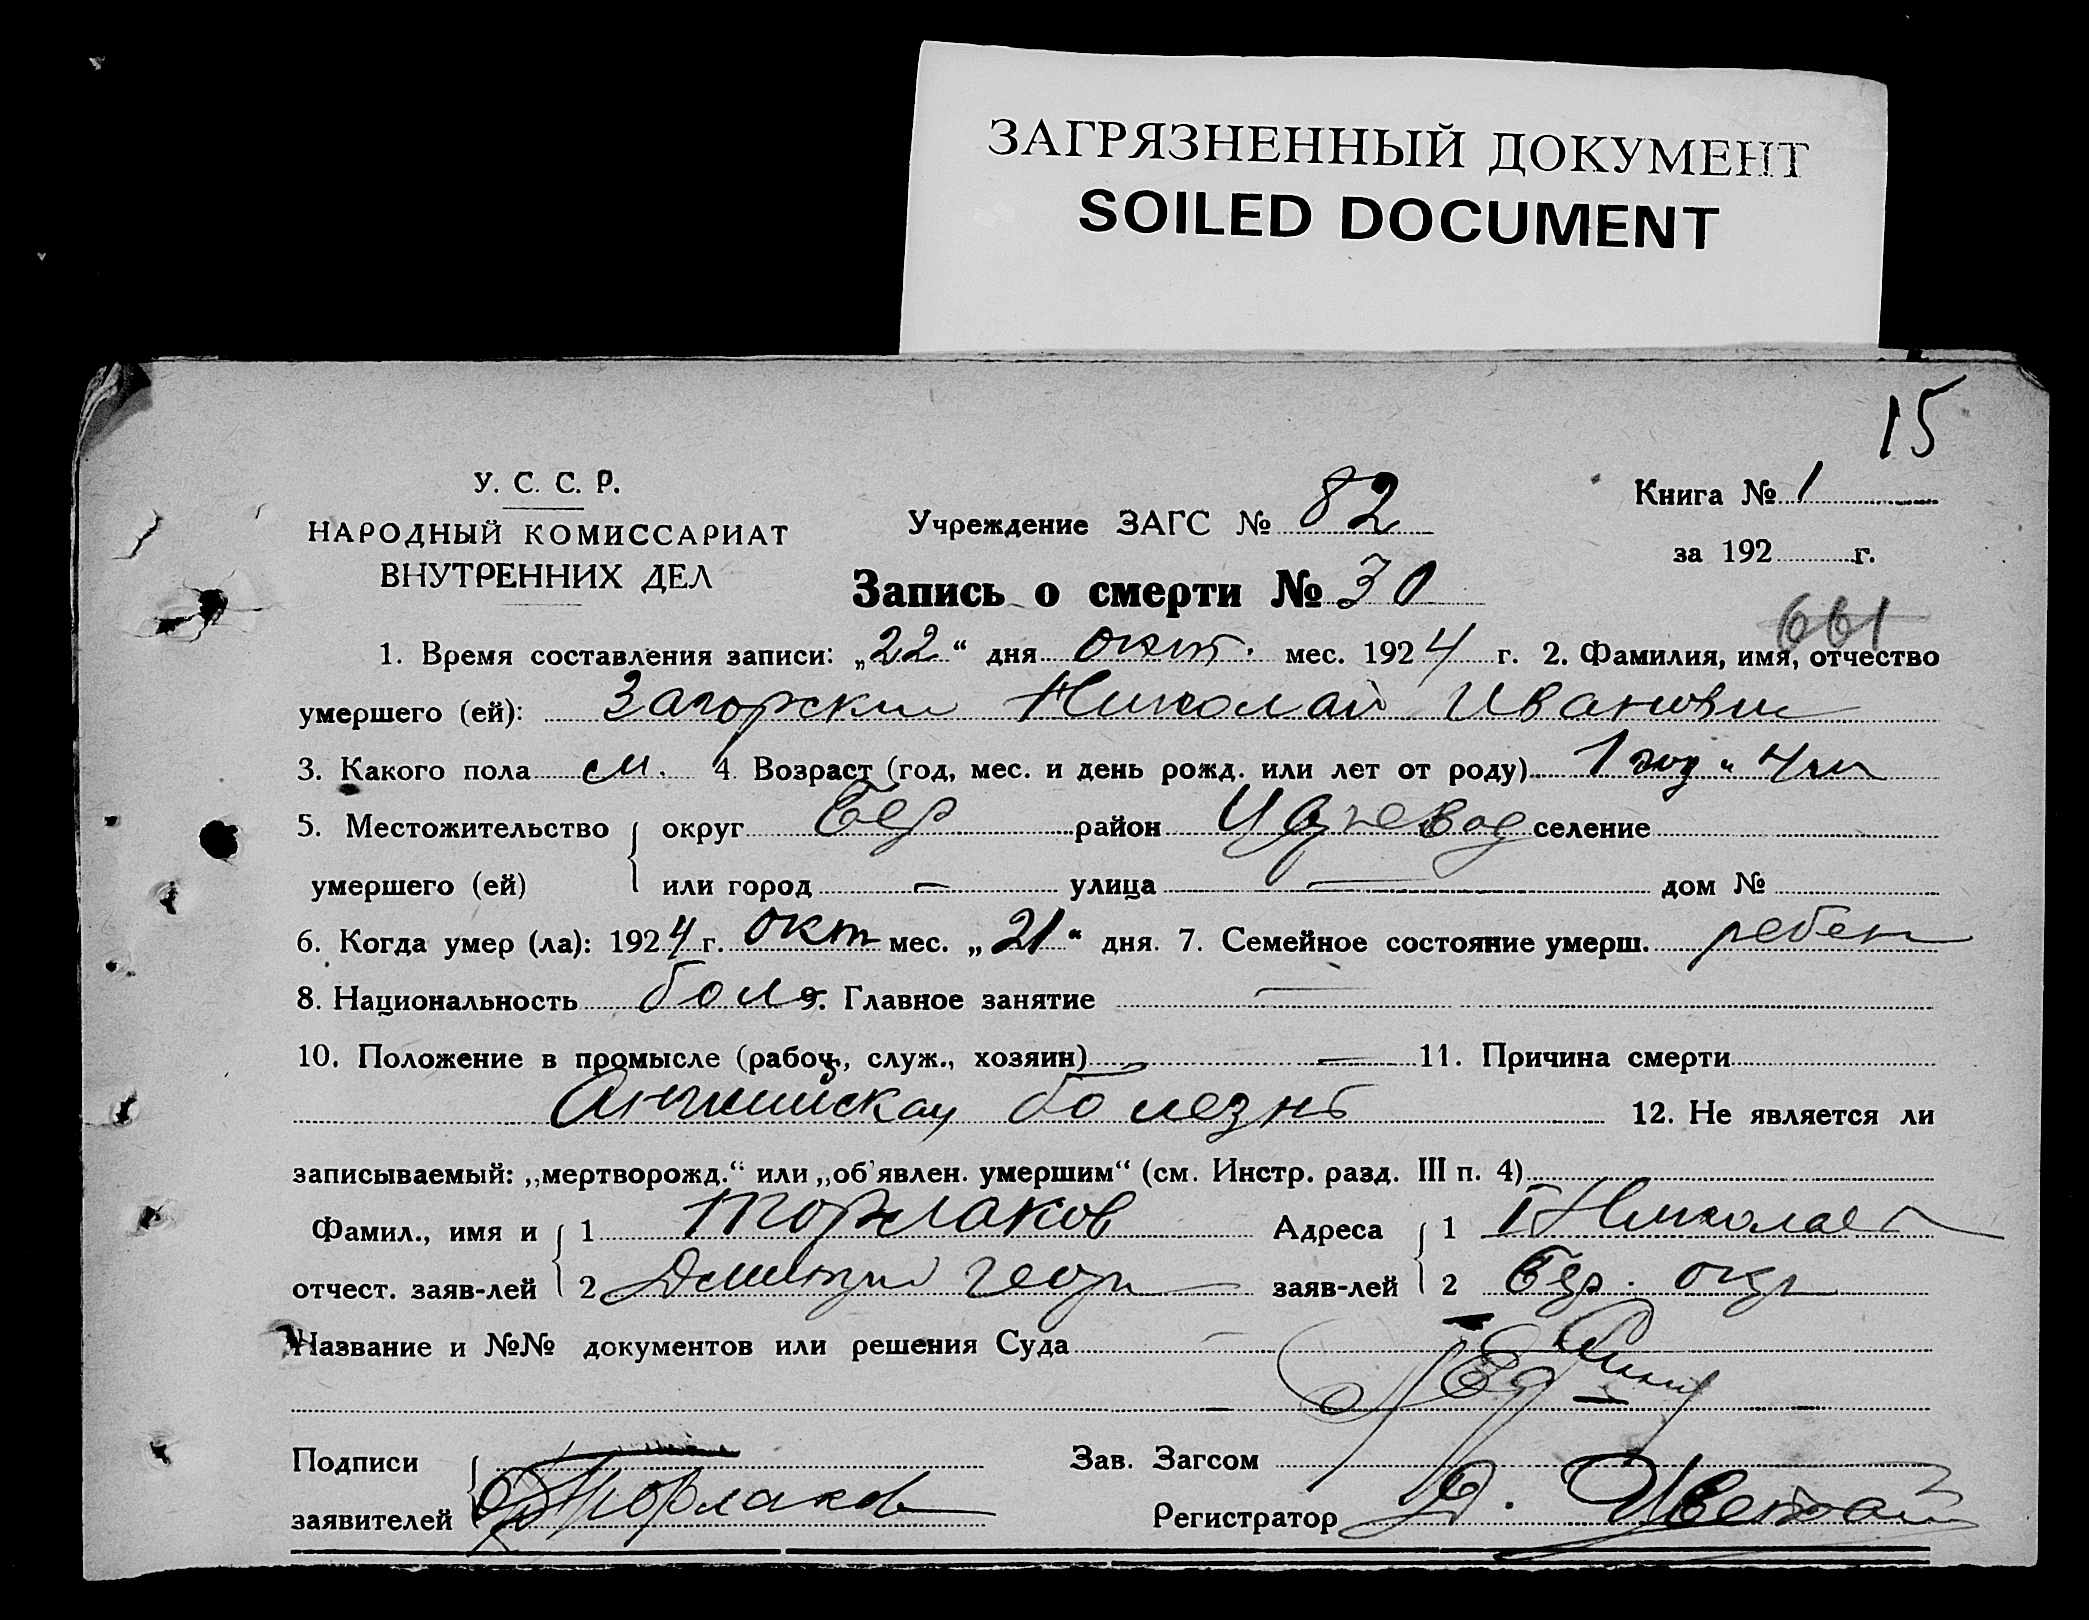 ЗАГРЯЗНЕННЫЙ ДОКУМЕНТ
SOILED DOCUMENT
15
У. С. С. Р.
НАРОДНЫЙ КОМИССАРИАТ
ВНУТРЕННИХ ДЕЛ
Учреждение ЗАГС № 82
Книга № 1
за 192 г.
Запись о смерти № 30
661
1. Время составления записи: „22“ дня окт. мес. 1924 г. 2. Фамилия, имя, отчество
умершего (ей): Загорски Николай Иванович
3. Какого пола м. 4. Возраст (год, мес. и день рожд. или лет от роду) 1 год и 4 м
5. Местожительство округ Бер район Царевод селение
умершего (ей) или город — улица — дом №
6. Когда умер (ла): 1924 г. окт мес. „21“ дня. 7. Семейное состояние умерш. ребен
8. Национальность болг 9. Главное занятие —
10. Положение в промысле (рабоч., служ., хозяин) — 11. Причина смерти
Английская болезнь 12. Не является ли
записываемый: „мертворожд.“ или „об'явлен. умершим“ (см. Инстр. разд. III п. 4)
Фамил., имя и 1 Торлаков Адреса 1 Николаев
отчест. заяв-лей 2 Дмитрий Геор заяв-лей 2 Бер. окр
Название и №№ документов или решения Суда —
Подписи Зав. Загсом
заявителей Торлаков Регистратор Д.